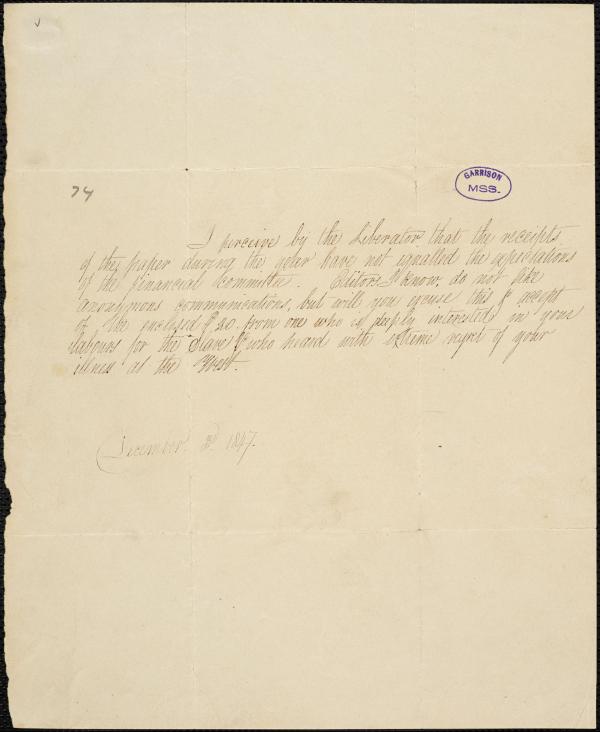 74
GARRISON
MSS.
I perceive by the Liberator that the receipts
of the paper during the year have not equalled the expectations
of the financial committee. Editors I know, do not like
anonymous communications, but will you excuse this & accept
of the enclosed $20. from one who is deeply interested in your
labours for the Slave & who heard with extreme regret of your
illness at the West.
December 3d 1847.